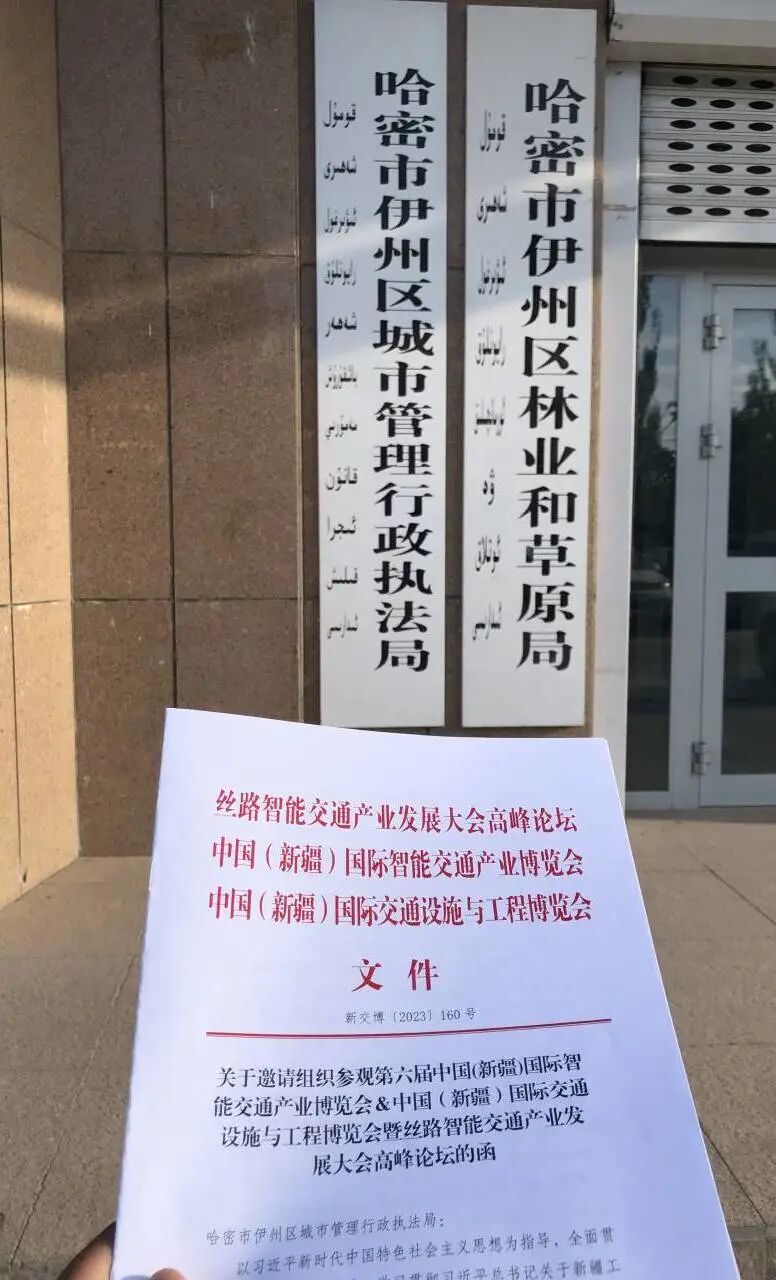 قومۇل شەھىرى ئىۋىرغول رايونلۇق شەھەر باشقۇرۇش مەمۇرىي قانۇن ئىجرا قىلىش ئىدارىسى
哈密市伊州区城市管理行政执法局
قومۇل شەھىرى ئىۋىرغول رايونلۇق ئورمانچىلىق ۋە ئوتلاق ئىدارىسى
哈密市伊州区林业和草原局
丝路智能交通产业发展大会高峰论坛
中国（新疆）国际智能交通产业博览会
中国（新疆）国际交通设施与工程博览会
文件
新交博〔2023〕160号
关于邀请组织参观第六届中国(新疆)国际智
能交通产业博览会&中国（新疆）国际交通
设施与工程博览会暨丝路智能交通产业发
展大会高峰论坛的函
哈密市伊州区城市管理行政执法局：
以习近平新时代中国特色社会主义思想为指导，全面贯
学习贯彻习近平总书记关于新疆工